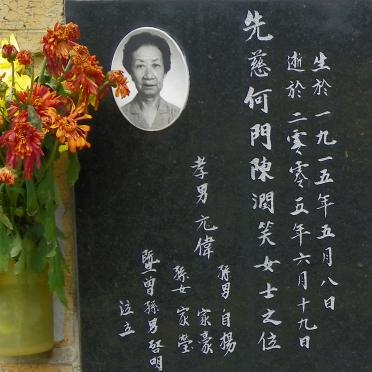 生於一九一五年五月八日
逝於二零零五年六月十九日
先慈何門陳潤笑女士之位
孝男亢偉
孫男自揚
家豪
孫女家瑩
暨曾孫男啓明
泣立